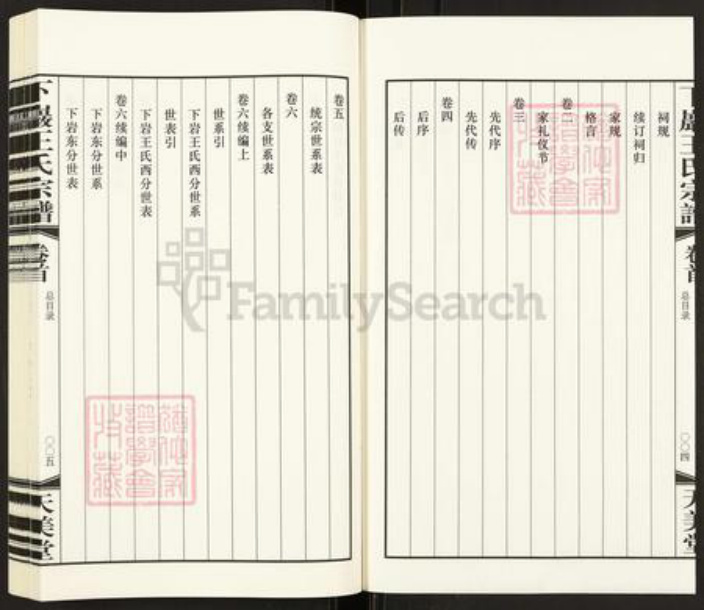 下巖王氏宗譜
卷首
总目录
〇〇四
天美堂
祠规
续订祠归
家规
格言
卷二
家礼仪节
卷三
先代序
先代传
卷四
后序
后传
卷五
统宗世系表
卷六
各支世系表
卷六续编上
世系引
下岩王氏西分世系
世表引
下岩王氏西分世表
卷六续编中
下岩东分世系
下岩东分世表
下巖王氏宗譜
卷首
总目录
〇〇五
天美堂
FamilySearch